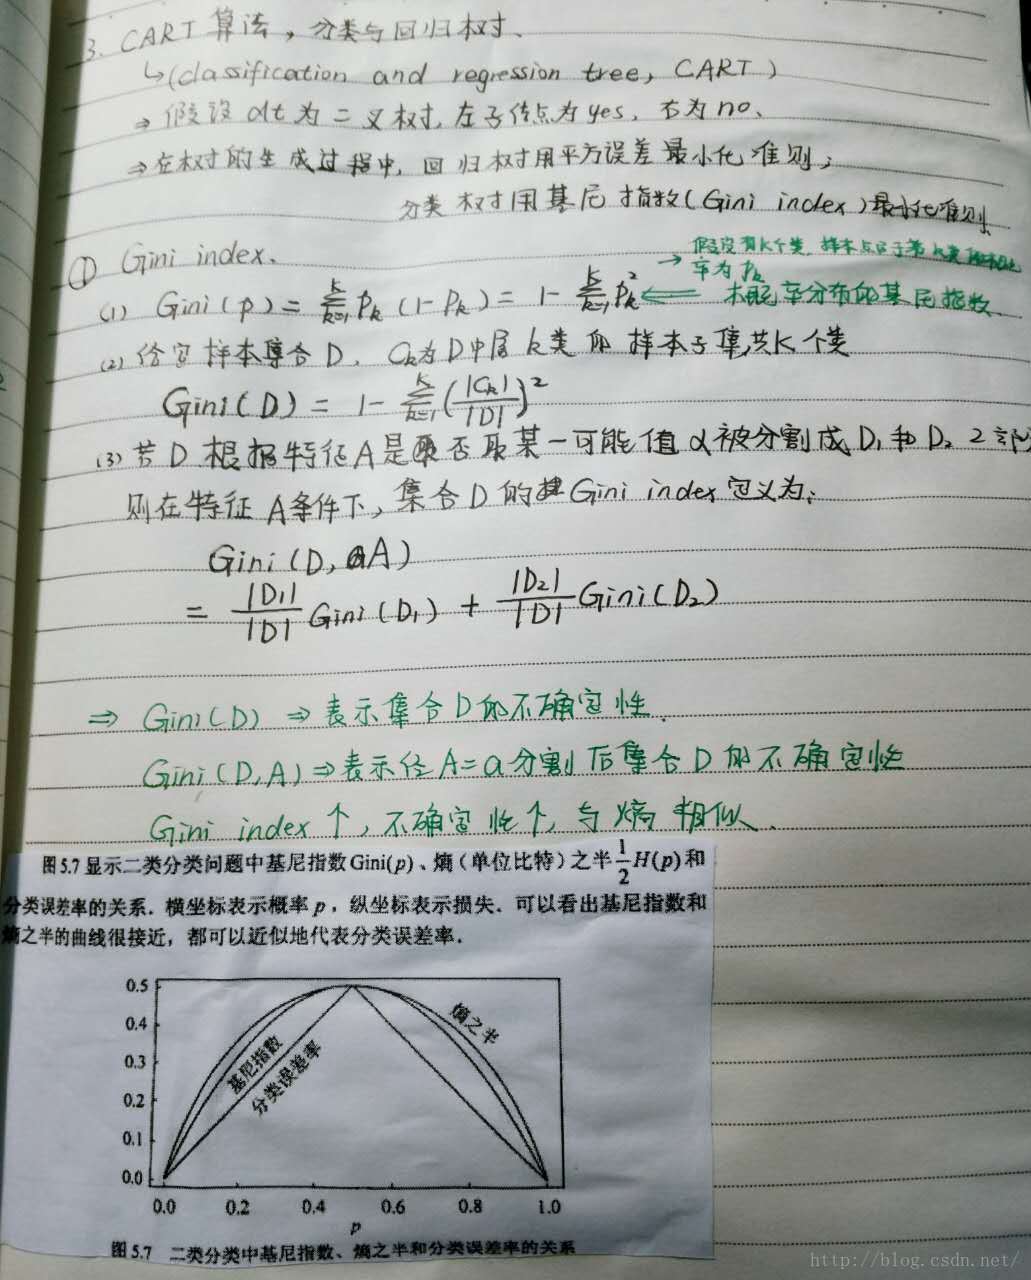 3. CART 算法，分类与回归树、
↳(classification and regression tree, CART)
⇒ 假设 dt 为二叉树，左子结点为yes，右为no、
⇒在树的生成过程中，回归树用平方误差最小化准则；
分类树用基尼指数(Gini index)最小化准则
① Gini index、
→ 假设有K个类，样本点属于第k类的概
率为 Pk
(1) Gini(p) = ∑_{k=1}^{K} Pk (1-Pk) = 1 - ∑_{k=1}^{K} Pk² ⟸ 概率分布的基尼指数
(2) 给定样本集合D，Ck为D中属k类的样本子集,共K个类
Gini(D) = 1 - ∑_{k=1}^{K} (|Ck|/|D|)²
(3) 若D根据特征A是否取某一可能值α被分割成D₁和D₂ 2部
则在特征A条件下，集合D的Gini index定义为：
Gini(D, A)
= |D₁|/|D| Gini(D₁) + |D₂|/|D| Gini(D₂)
⇒ Gini(D) ⇒ 表示集合D的不确定性.
Gini(D,A) ⇒表示经A=a分割后集合D的不确定性
Gini index ↑, 不确定性↑, 与熵相似.
图5.7显示二类分类问题中基尼指数Gini(p)、熵（单位比特）之半 1/2 H(p)和
分类误差率的关系．横坐标表示概率 p，纵坐标表示损失．可以看出基尼指数和
熵之半的曲线很接近，都可以近似地代表分类误差率．
0.5
0.4
0.3
0.2
0.1
0.0
熵之半
基尼指数
分类误差率
0.0 0.2 0.4 0.6 0.8 1.0
p
图5.7 二类分类中基尼指数、熵之半和分类误差率的关系
http://blog.csdn.net/